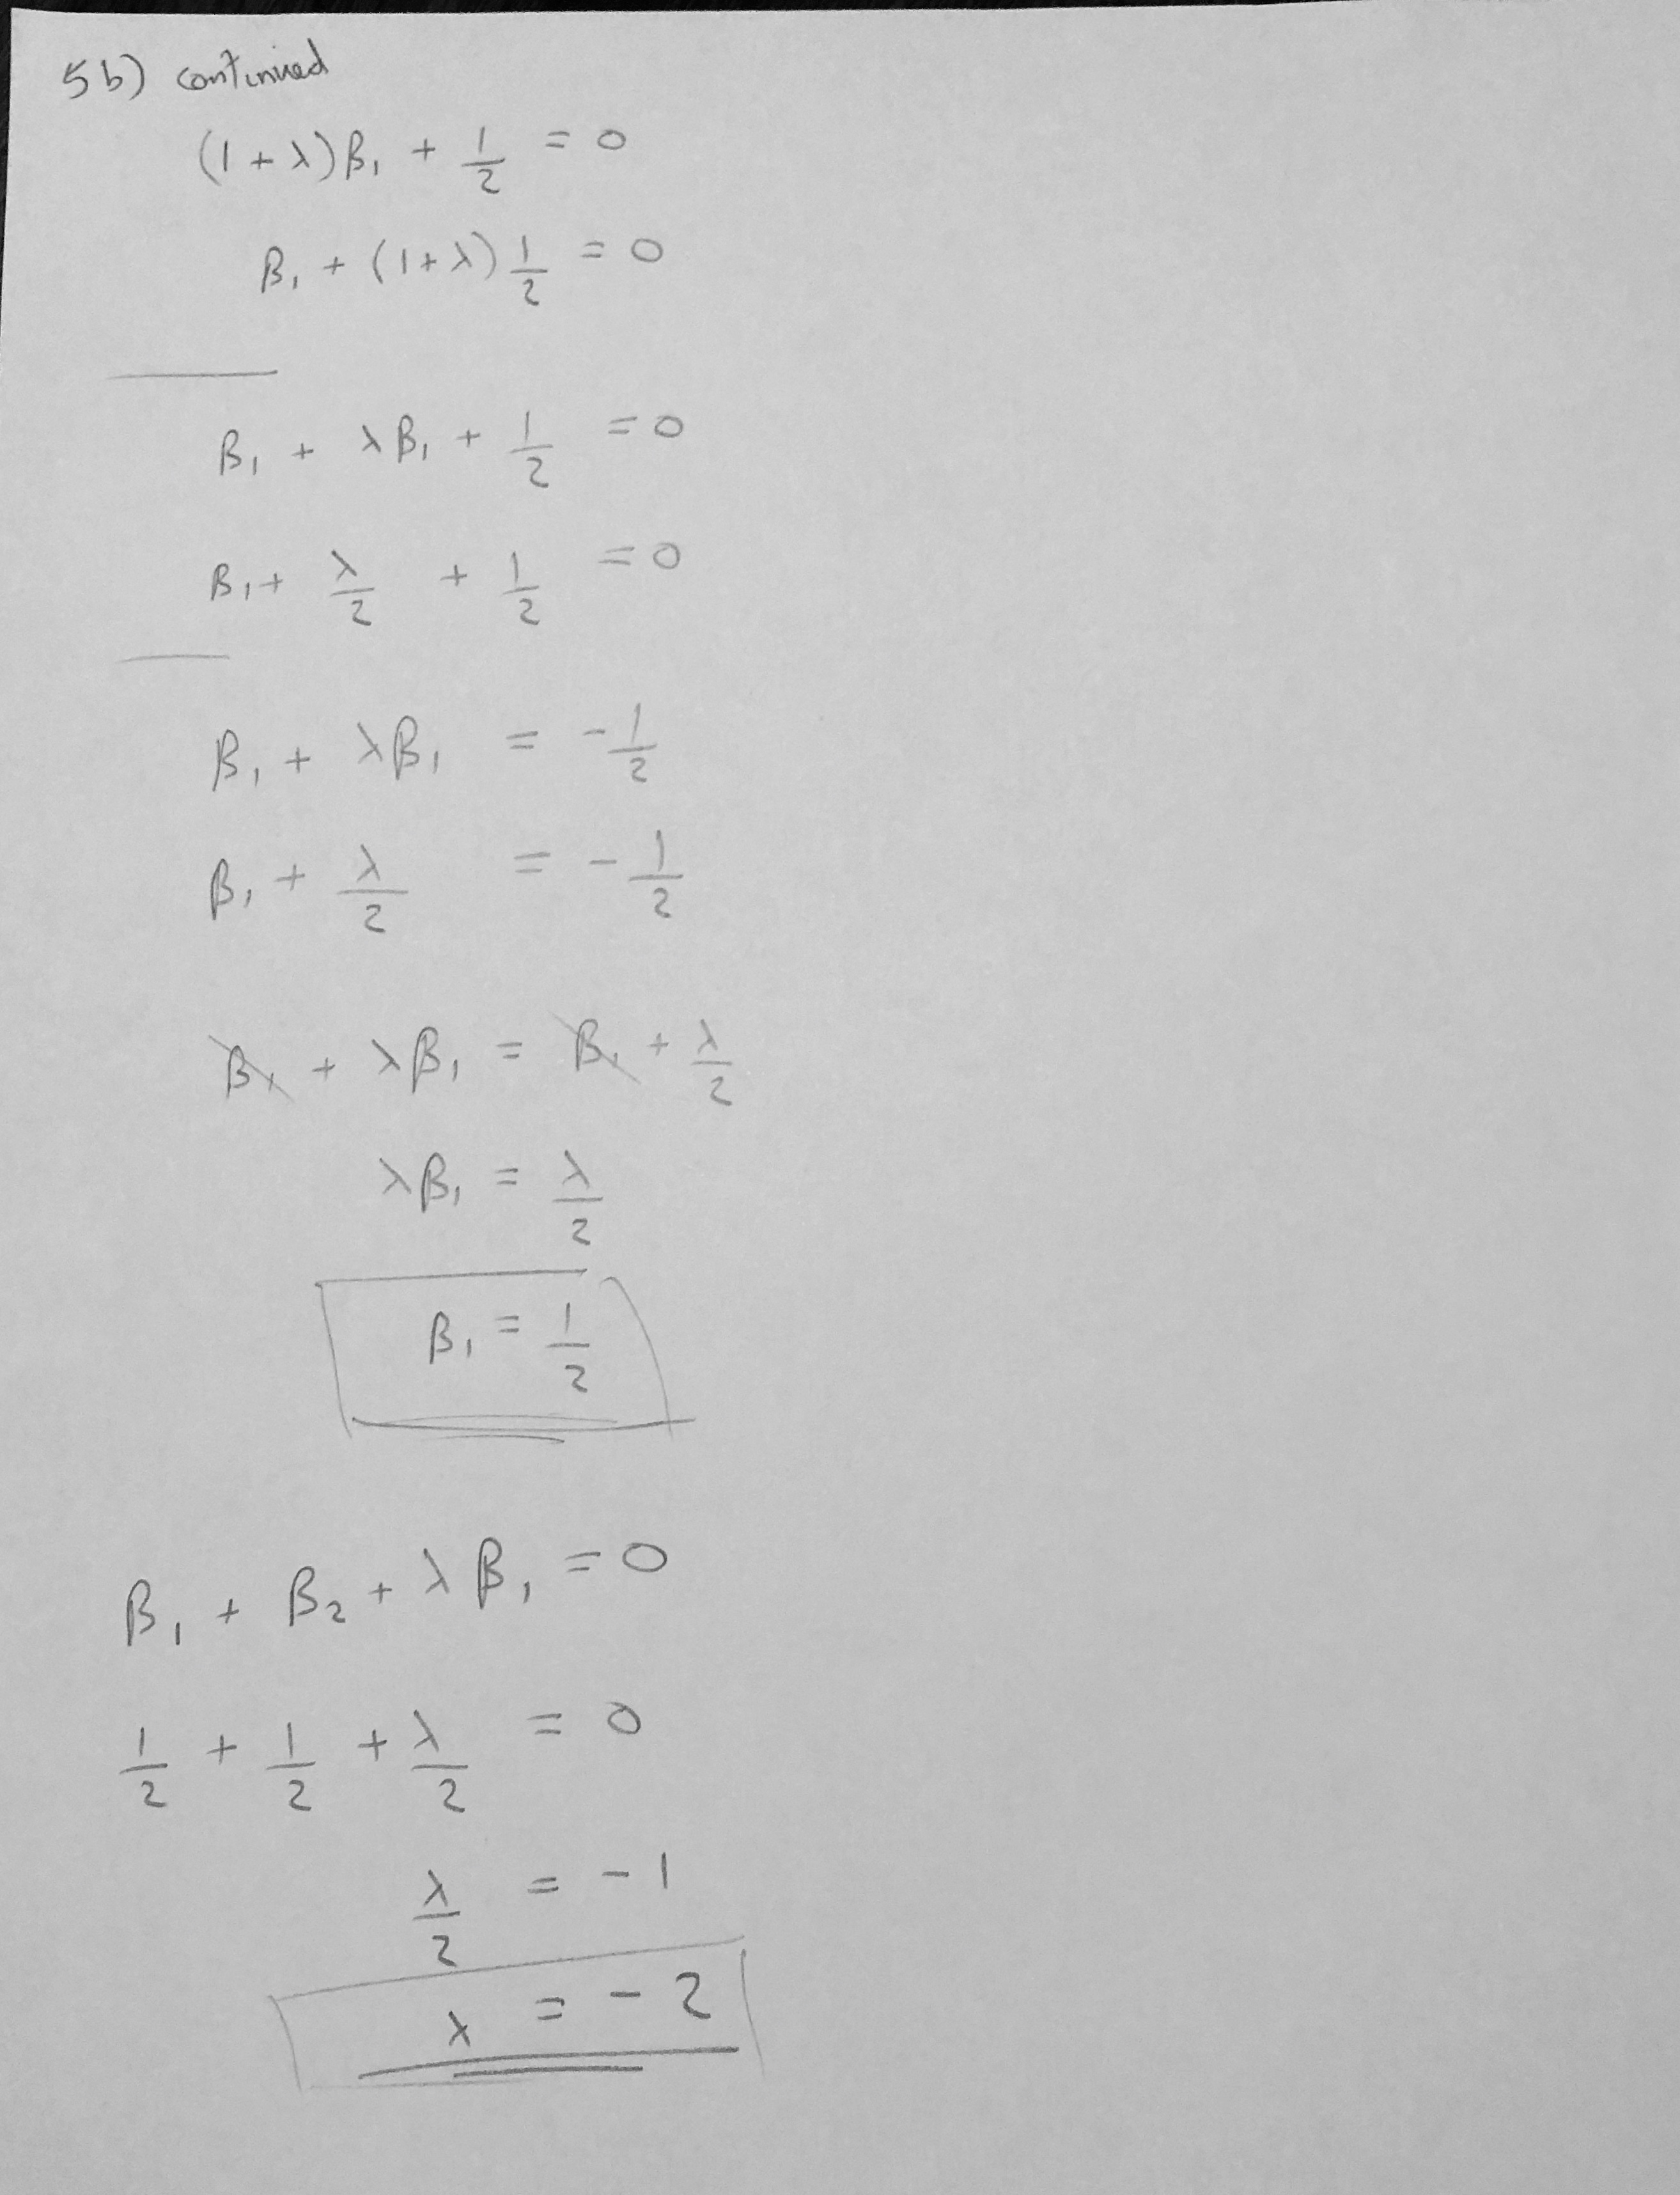 5b) continued
(1 + λ)β₁ + 1/2 = 0
β₁ + (1 + λ) 1/2 = 0
β₁ + λβ₁ + 1/2 = 0
β₁ + λ/2 + 1/2 = 0
β₁ + λβ₁ = -1/2
β₁ + λ/2 = -1/2
β₁ + λβ₁ = β₁ + λ/2
λβ₁ = λ/2
β₁ = 1/2
β₁ + β₂ + λβ₁ = 0
1/2 + 1/2 + λ/2 = 0
λ/2 = -1
λ = -2